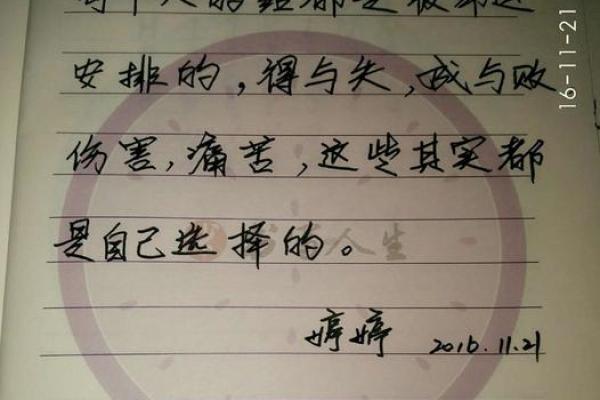 人的 都是被
安排的，得与失，成与败
伤害，痛苦，这些其实都
是自己选择的。
人生
婷婷 2016.11.21
16-11-21